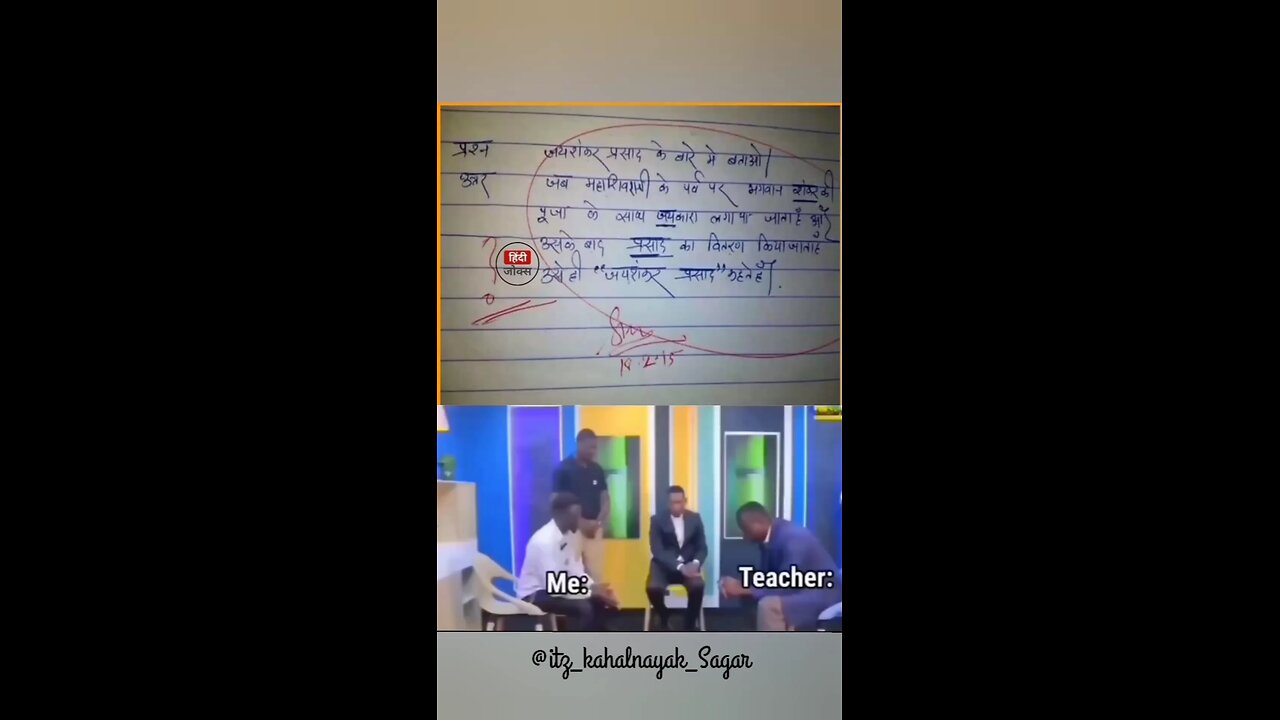 प्रश्न जयशंकर प्रसाद के बारे मे बताओ।
उत्तर जब महाशिवरात्री के पर्व पर भगवान शंकर की
पूजा के साथ जयकारा लगाया जाता है और
उसके बाद प्रसाद का वितरण किया जाता है
उसे ही "जयशंकर प्रसाद" कहते हैं।
हिंदी
जोक्स
18.2.15
Me:
Teacher:
@itz_kahalnayak_Sagar